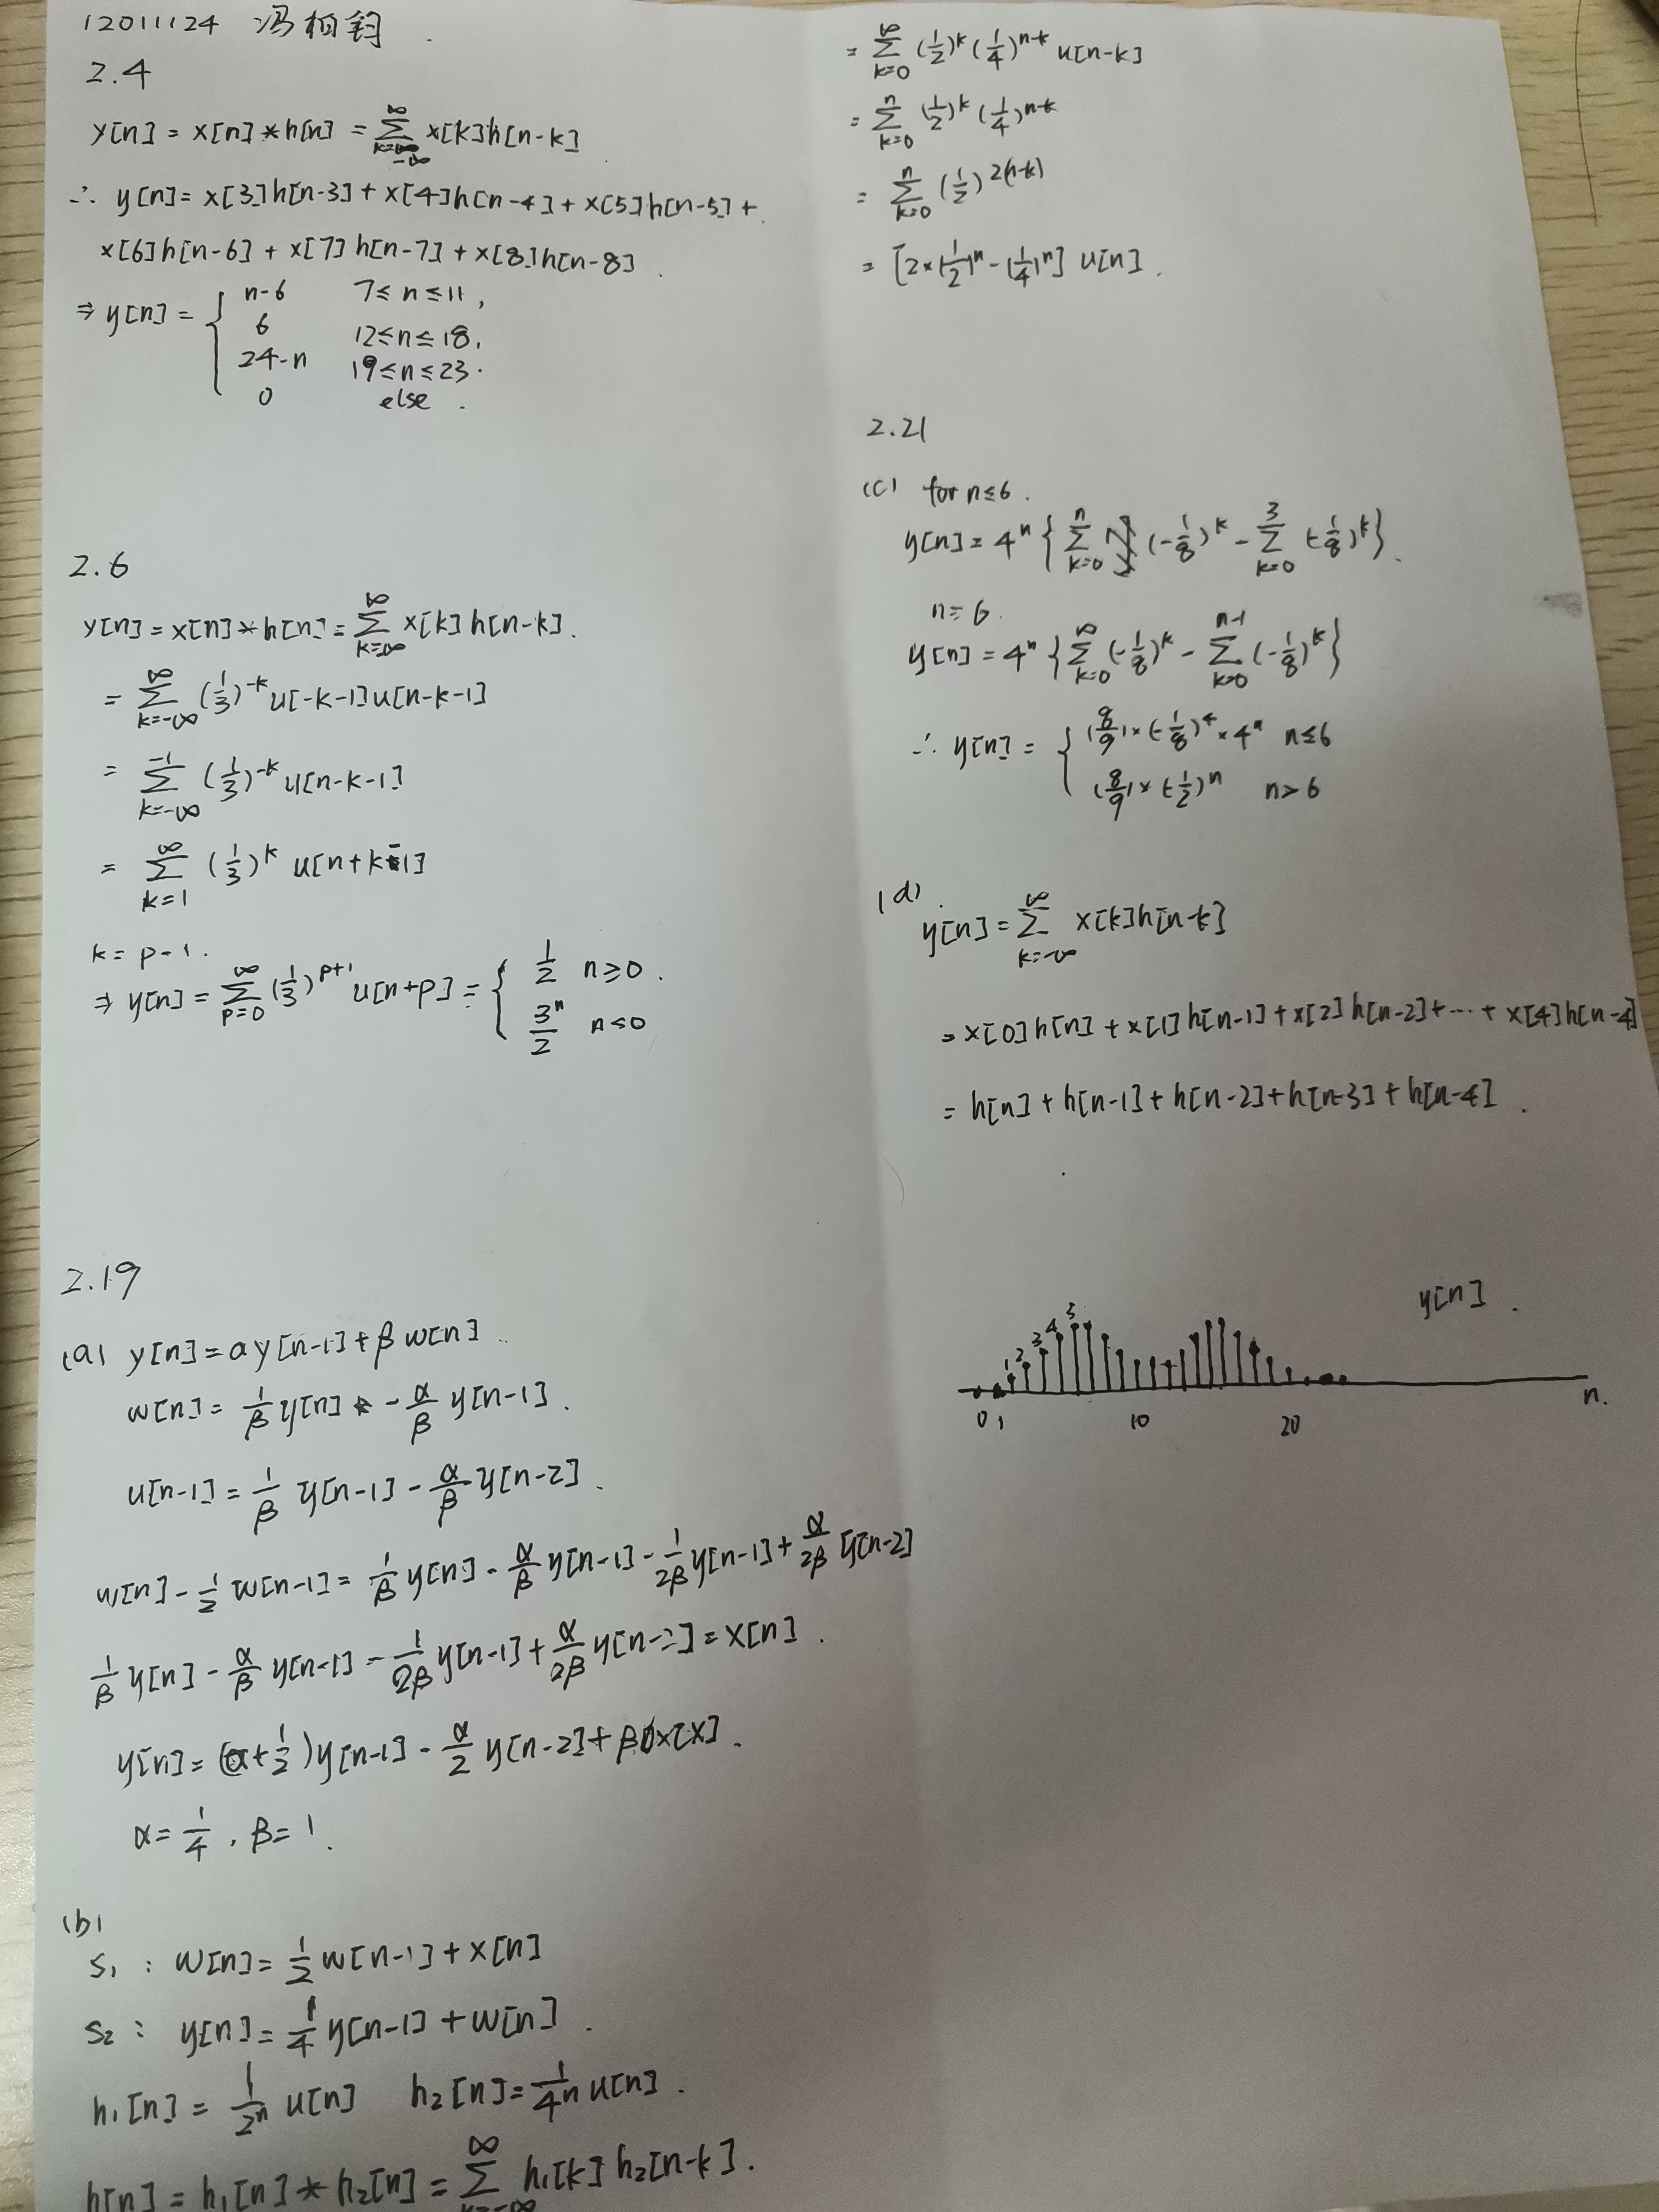 12011124 冯柏钧
2.4
y[n] = x[n] * h[n] = ∑_{k=-∞}^{∞} x[k]h[n-k]
∴ y[n] = x[3]h[n-3] + x[4]h[n-4] + x[5]h[n-5] +
x[6]h[n-6] + x[7]h[n-7] + x[8]h[n-8].
⇒ y[n] = { n-6 7≤n≤11,
6 12≤n≤18,
24-n 19≤n≤23.
0 else.
2.6
y[n] = x[n] * h[n] = ∑_{k=-∞}^{∞} x[k]h[n-k].
= ∑_{k=-∞}^{∞} (1/3)^{-k} u[-k-1]u[n-k-1]
= ∑_{k=-∞}^{-1} (1/3)^{-k} u[n-k-1]
= ∑_{k=1}^{∞} (1/3)^k u[n+k-1]
k = p-1.
⇒ y[n] = ∑_{p=0}^{∞} (1/3)^{p+1} u[n+p] = { 1/2 n≥0.
3^n/2 n≤0
2.19
(a) y[n] = αy[n-1] + βw[n]
w[n] = 1/β y[n] - α/β y[n-1].
u[n-1] = 1/β y[n-1] - α/β y[n-2].
w[n] - 1/2 w[n-1] = 1/β y[n] - α/β y[n-1] - 1/2β y[n-1] + α/2β y[n-2]
1/β y[n] - α/β y[n-1] - 1/2β y[n-1] + α/2β y[n-2] = x[n].
y[n] = (α+1/2)y[n-1] - α/2 y[n-2] + βx[x].
α = 1/4, β = 1.
(b)
S₁: w[n] = 1/2 w[n-1] + x[n]
S₂: y[n] = 1/4 y[n-1] + w[n].
h₁[n] = 1/2^n u[n] h₂[n] = 1/4^n u[n].
h[n] = h₁[n] * h₂[n] = ∑_{k=-∞}^{∞} h₁[k]h₂[n-k].
= ∑_{k=0}^{∞} (1/2)^k (1/4)^{n-k} u[n-k]
= ∑_{k=0}^{n} (1/2)^k (1/4)^{n-k}
= ∑_{k=0}^{n} (1/2)^{2(n-k)}
= [2×(1/2)^n - (1/4)^n] u[n].
2.21
(c) for n≤6.
y[n] = 4^n { ∑_{k=0}^{n} (-1/8)^k - ∑_{k=0}^{3} (-1/8)^k }.
n = 6.
y[n] = 4^n { ∑_{k=0}^{∞} (-1/8)^k - ∑_{k=0}^{n-1} (-1/8)^k }
∴ y[n] = { (8/9)×(-1/8)^4×4^n n≤6
(8/9)×(-1/2)^n n>6
(d).
y[n] = ∑_{k=-∞}^{∞} x[k]h[n-k]
= x[0]h[n] + x[1]h[n-1] + x[2]h[n-2] + ⋯ + x[4]h[n-4]
= h[n] + h[n-1] + h[n-2] + h[n-3] + h[n-4].
y[n].
1 2 3 4 5
0 1 10 20 n.